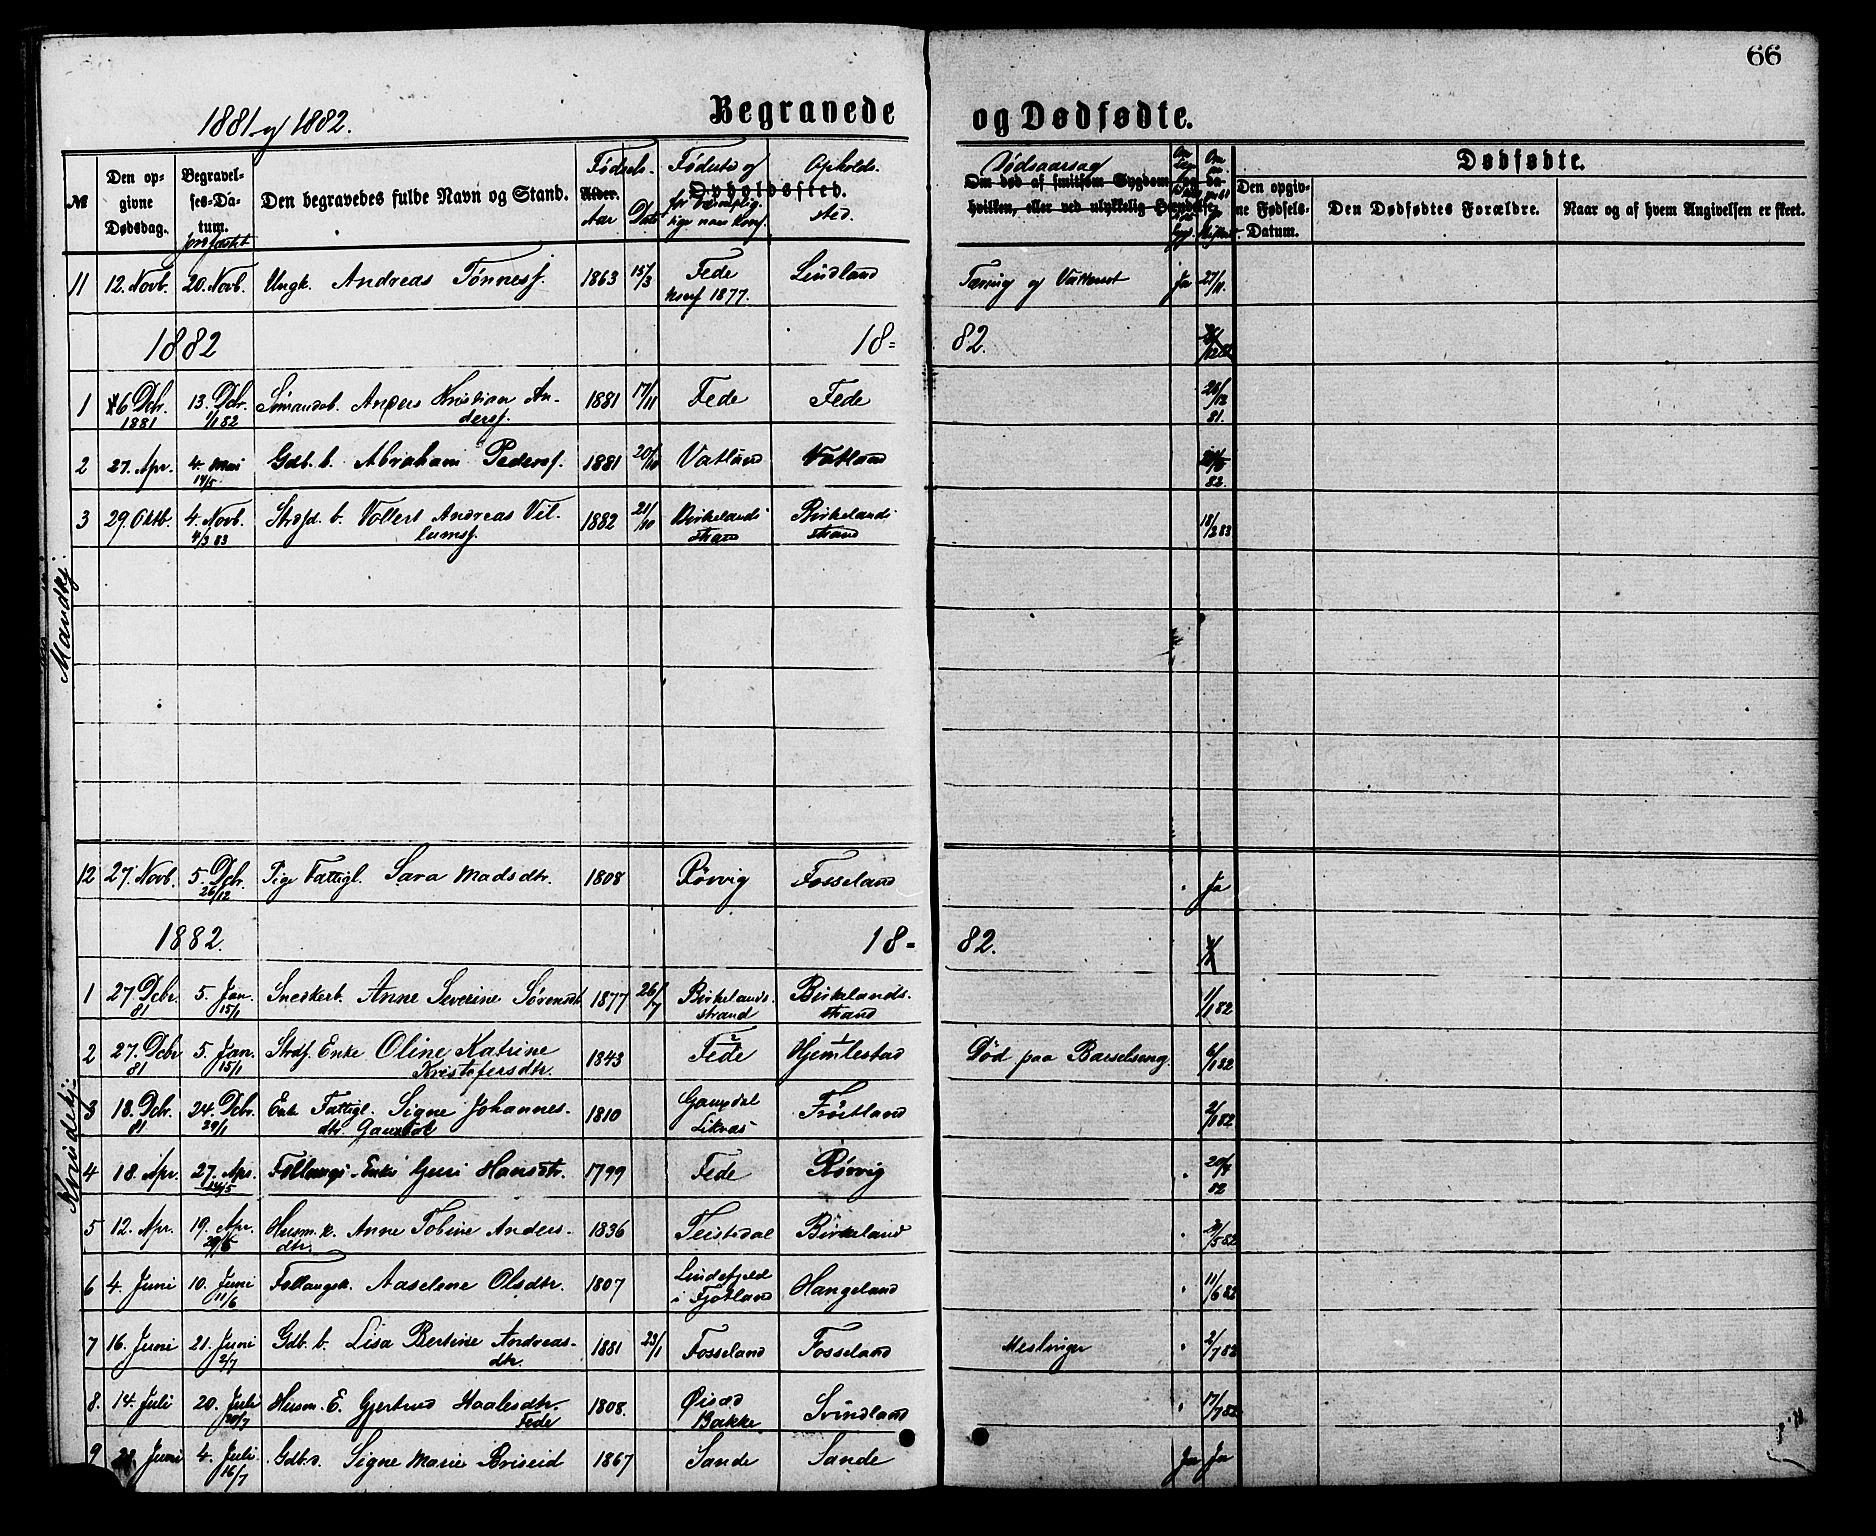 66
1881 og 1882.
Begravede og Dødfødte.
№
Den opgivne Dødsdag.
Begravelses-Datum.
jordfæstet
Den begravedes fulde Navn og Stand.
Føds.
Alder.
Aar Dato
Fødested og
Opholds-
Opholdssted.
sted.
Dødsaarsag
Om død af smitsom Sygdom og da
hvilken, eller ved ulykkelig Hændelse.
Dødfødte.
Den opgivne Fødsels-Datum.
Den Dødfødtes Forældre.
Naar og af hvem Angivelsen er skeet.
11 12. Novb. 20. Novb. Ungk. Andreas Tønnesf. 1863 15/3 Fede Lindland Tæring og Vattersot Ja 27/11.
konf 1877.
1882 18= 82.
1 6 Dcbr. 13. Dcbr. Sømandsb. Anders Kristian An- 1881 17/11 Fede Fede 26/12
1881 1/1 82 dersf. 81.
2 27. Apr. 4. Mai Gdb. b. Abraham Pedersf. 1881 20/10 Vatland Vatland
14/5. 82.
3 29. Oktb. 4. Novb. Strdsd. b. Vollert Andreas Vil- 1882 21/10 Birkelands Birkelands 18/1283
4/3 83 lumsf. strand strand
Mandkj.
12 27. Novb. 5. Dcbr. Pige Fattigl. Sara Madsdtr. 1808 Rørvig Fosseland Ja
26/12
1882. 18= 82.
1 27 Dcbr. 5. Jan. Snedkerb. Anne Severine Sørensdt. 1877 26/7 Birkelands- Birkelands- 1/1 82
81 15/1 strand strand
2 27. Dcbr 5. Jan. Strdsf. Enke Oline Katrine 1843 Fede Hjemlestad Død paa Barselseng. 6/1 82
81 15/1 Kristofersdtr.
3 18. Dcbr. 24. Dcbr. Enke Fattigl. Signe Johannes- 1810 Gausdal Frøitland 2/1 82
81 29/1 dtr. Gausdal Likvas
4 18. Apr. 27. Apr. Follaugs Enke Guri Hansdtr. 1799 Fede Rørvig 20/4
82
5 12. Apr. 19. Apr. Husm. k. Anne Tobine Anders- 1836 Teistedal Birkeland
dtr.
6 4. Juni 10. Juni Follaugsk. Aaselene Olsdtr. 1807 Lindefjeld Hangeland 11/6 82
11/6 i Fjotland
7 16. Juni 21. Juni Gdb. b. Lisa Bertine Andreas- 1881 23/1 Fosseland Fosseland Meslinger 2/7 82
2/7 dtr.
8. 14. Juli 20. Juli Husm. E. Gjertrud Haalesdtr. 1808. Øisæd Svindland 17/7 82
20/7 Fede Bakke
9 4. Juli Gdb.d. Signe Marie Briseid 1867 Sande Sande Ja Ja
16/7
Kvindekj.